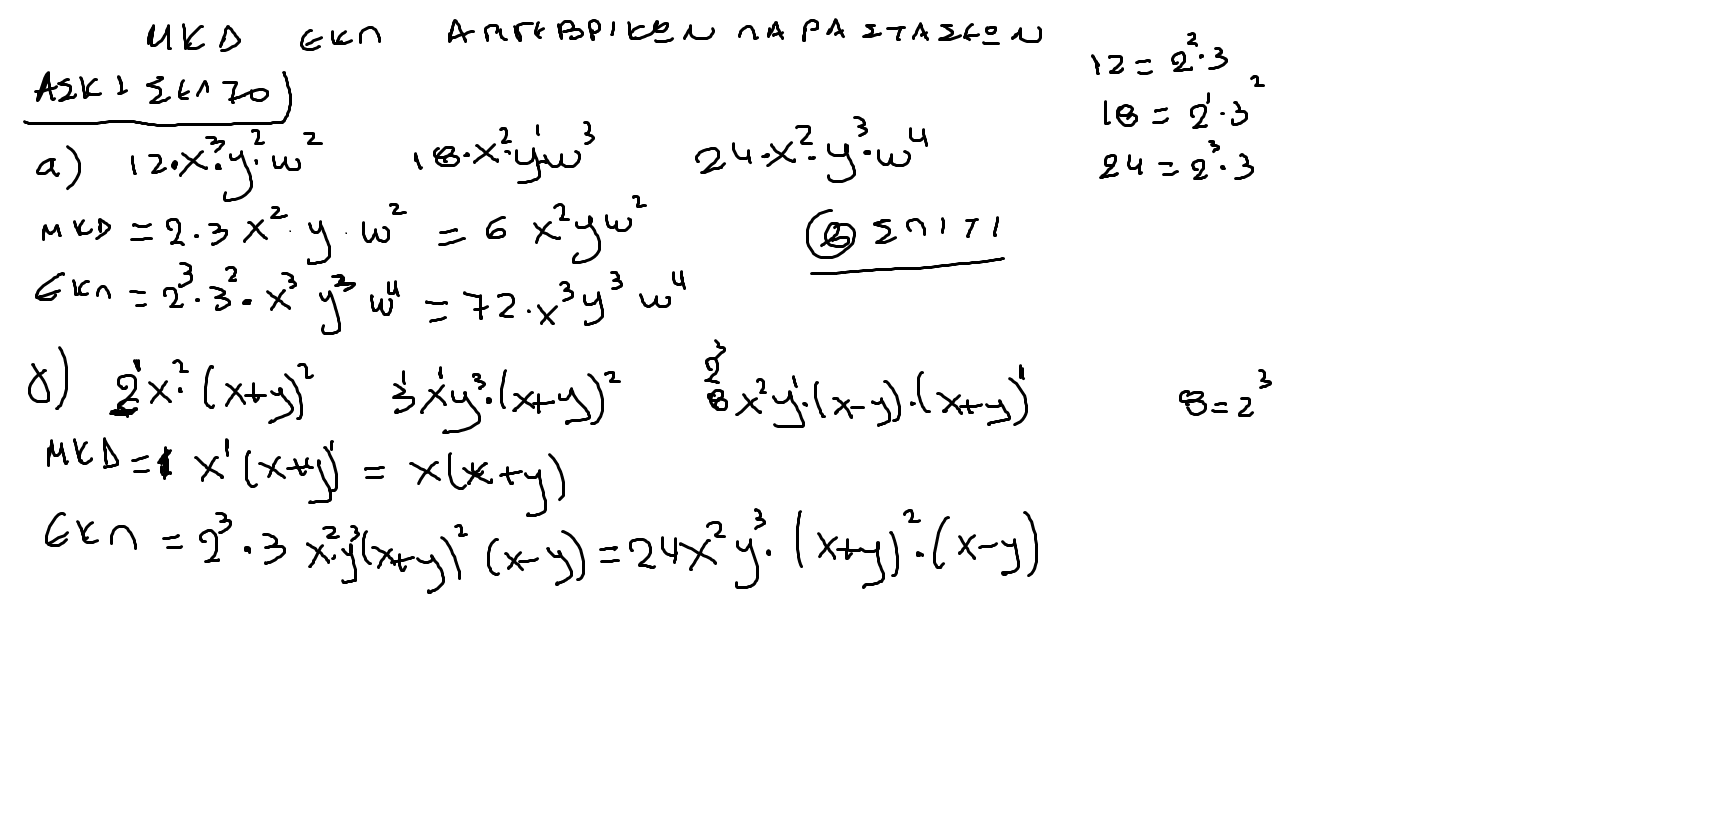 ΜΚΔ ΕΚΠ ΑΛΓΕΒΡΙΚΩΝ ΠΑΡΑΣΤΑΣΕΩΝ
ΑΣΚ 1 ΣΕΛ 70)
12 = 2²·3
18 = 2¹·3²
24 = 2³·3
α) 12·x³·y²·ω² 18·x²·y¹·ω³ 24·x²·y³·ω⁴
ΜΚΔ = 2·3 x²·y·ω² = 6 x²yω² β ΣΠΙΤΙ
ΕΚΠ = 2³·3²·x³ y³ ω⁴ = 72·x³y³ω⁴
γ) 2¹x²·(x+y)² 3¹x¹y³·(x+y)² 2³ 8x²y¹·(x-y)·(x+y)¹ 8=2³
ΜΚΔ = 1 x¹(x+y)¹ = x(x+y)
ΕΚΠ = 2³·3 x²·y³(x+y)² (x-y) = 24x²y³·(x+y)²·(x-y)